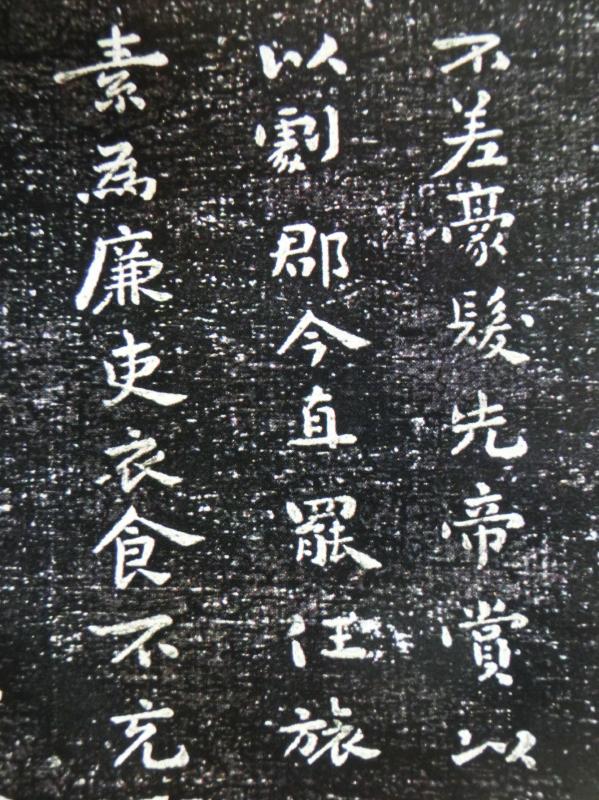 不差豪髮先帝賞以
以劇郡今直罷任旅
素為廉吏衣食不充